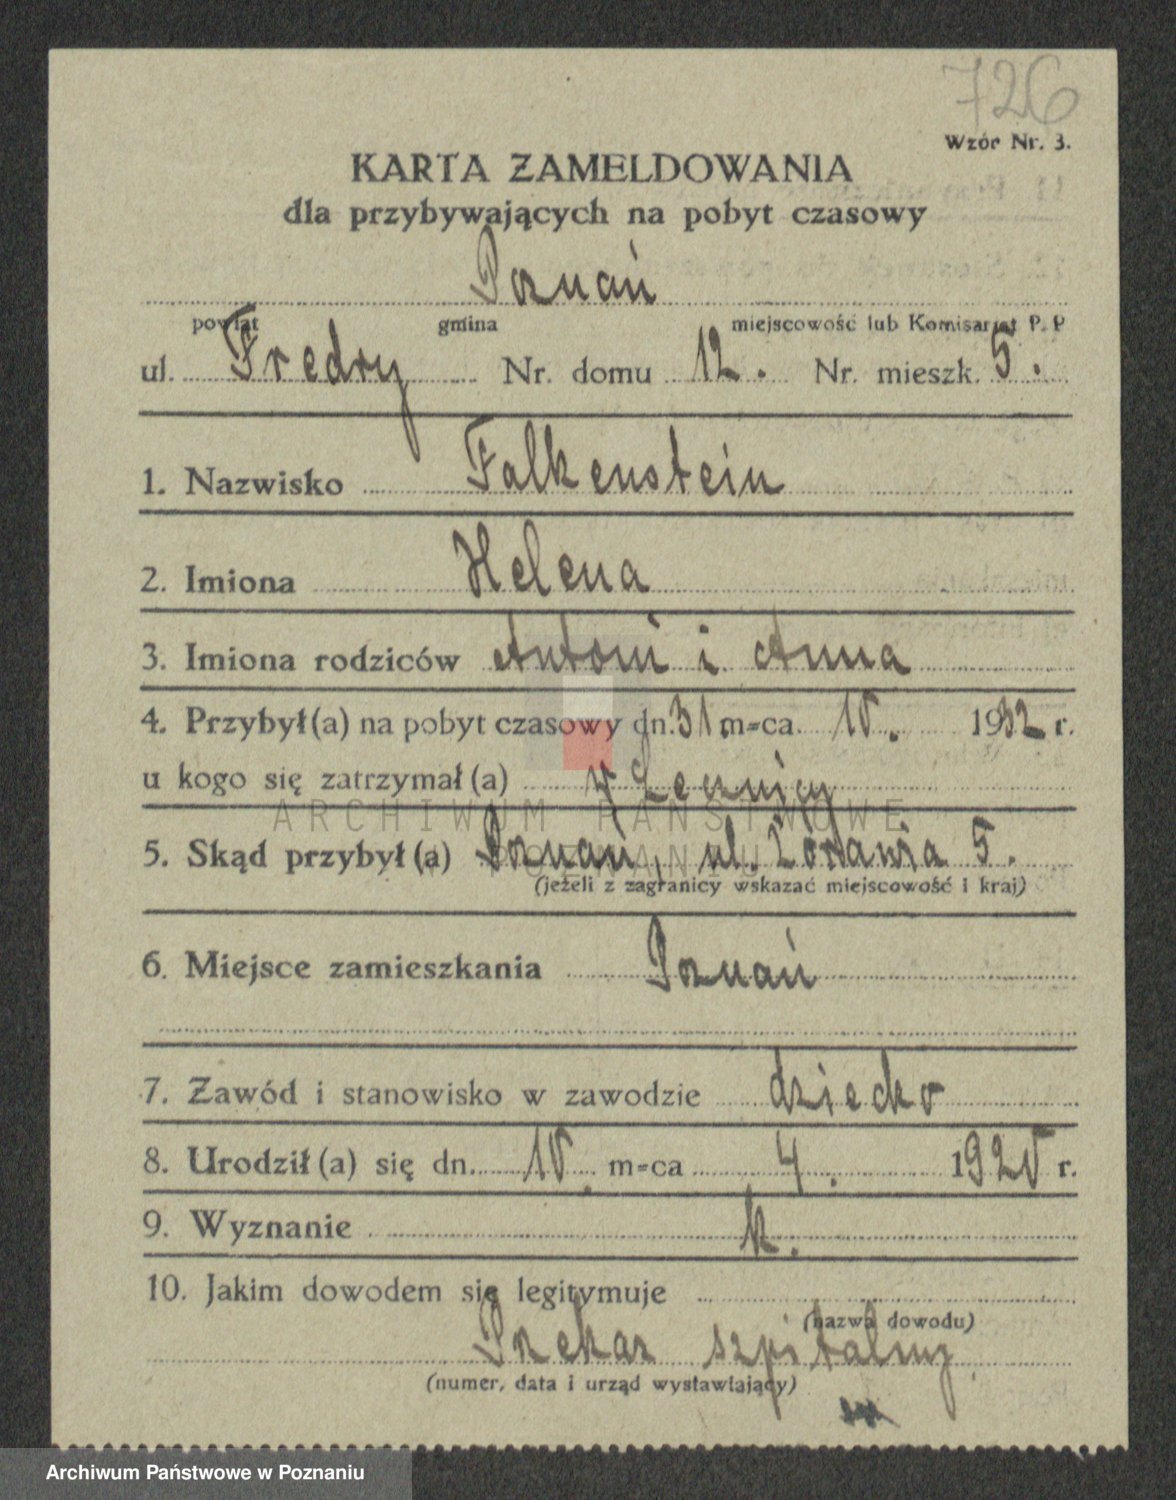 726
Wzór Nr. 3.
KARTA ZAMELDOWANIA
dla przybywających na pobyt czasowy
Poznań
powiat gmina miejscowość lub Komisarjat P. P
ul. Fredry Nr. domu 12. Nr. mieszk. 5.
1. Nazwisko Falkenstein
2. Imiona Helena
3. Imiona rodziców Antoni i Anna
4. Przybył(a) na pobyt czasowy dn. 31. m-ca. 10. 1932 r.
u kogo się zatrzymał(a) w Lecznicy
ARCHIWUM PAŃSTWOWE
5. Skąd przybył(a) Poznań, ul. 5.
W POZNANIU
(jeżeli z zagranicy wskazać miejscowość i kraj)
6. Miejsce zamieszkania Poznań
7. Zawód i stanowisko w zawodzie dziecko
8. Urodził(a) się dn. 10. m-ca 4. 1920 r.
9. Wyznanie k.
10. Jakim dowodem się legitymuje
(nazwa dowodu)
Przekaz szpitalny
(numer, data i urząd wystawiający)
Archiwum Państwowe w Poznaniu